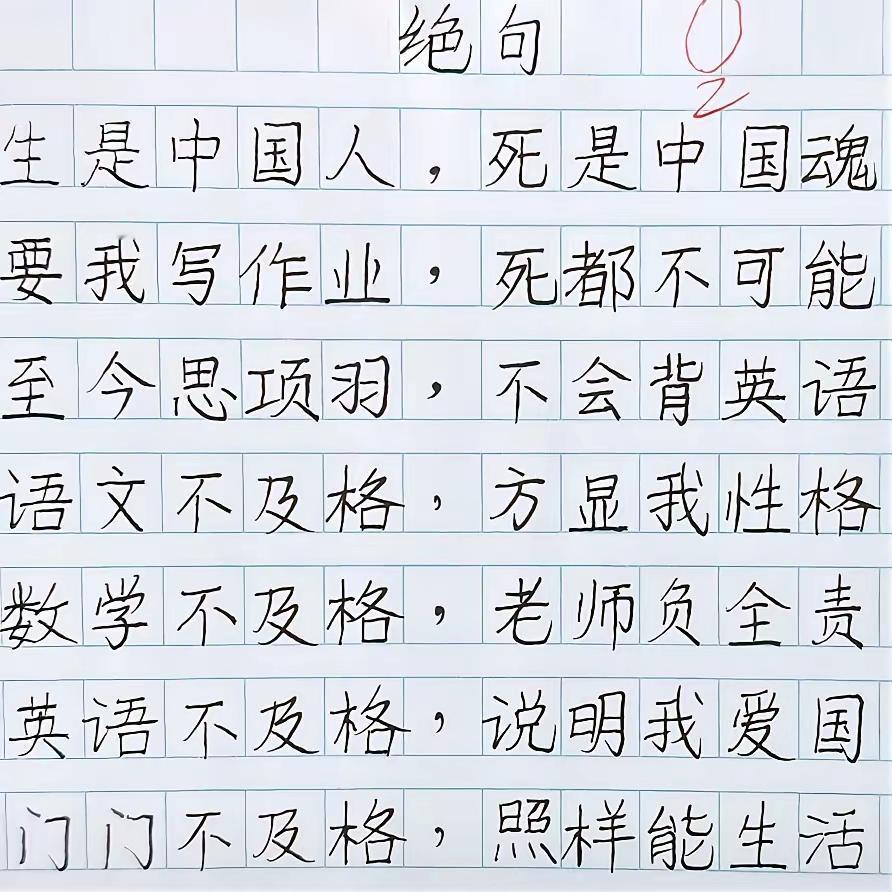 绝句
0
2
生是中国人,死是中国魂
要我写作业,死都不可能
至今思项羽,不会背英语
语文不及格,方显我性格
数学不及格,老师负全责
英语不及格,说明我爱国
门门不及格,照样能生活